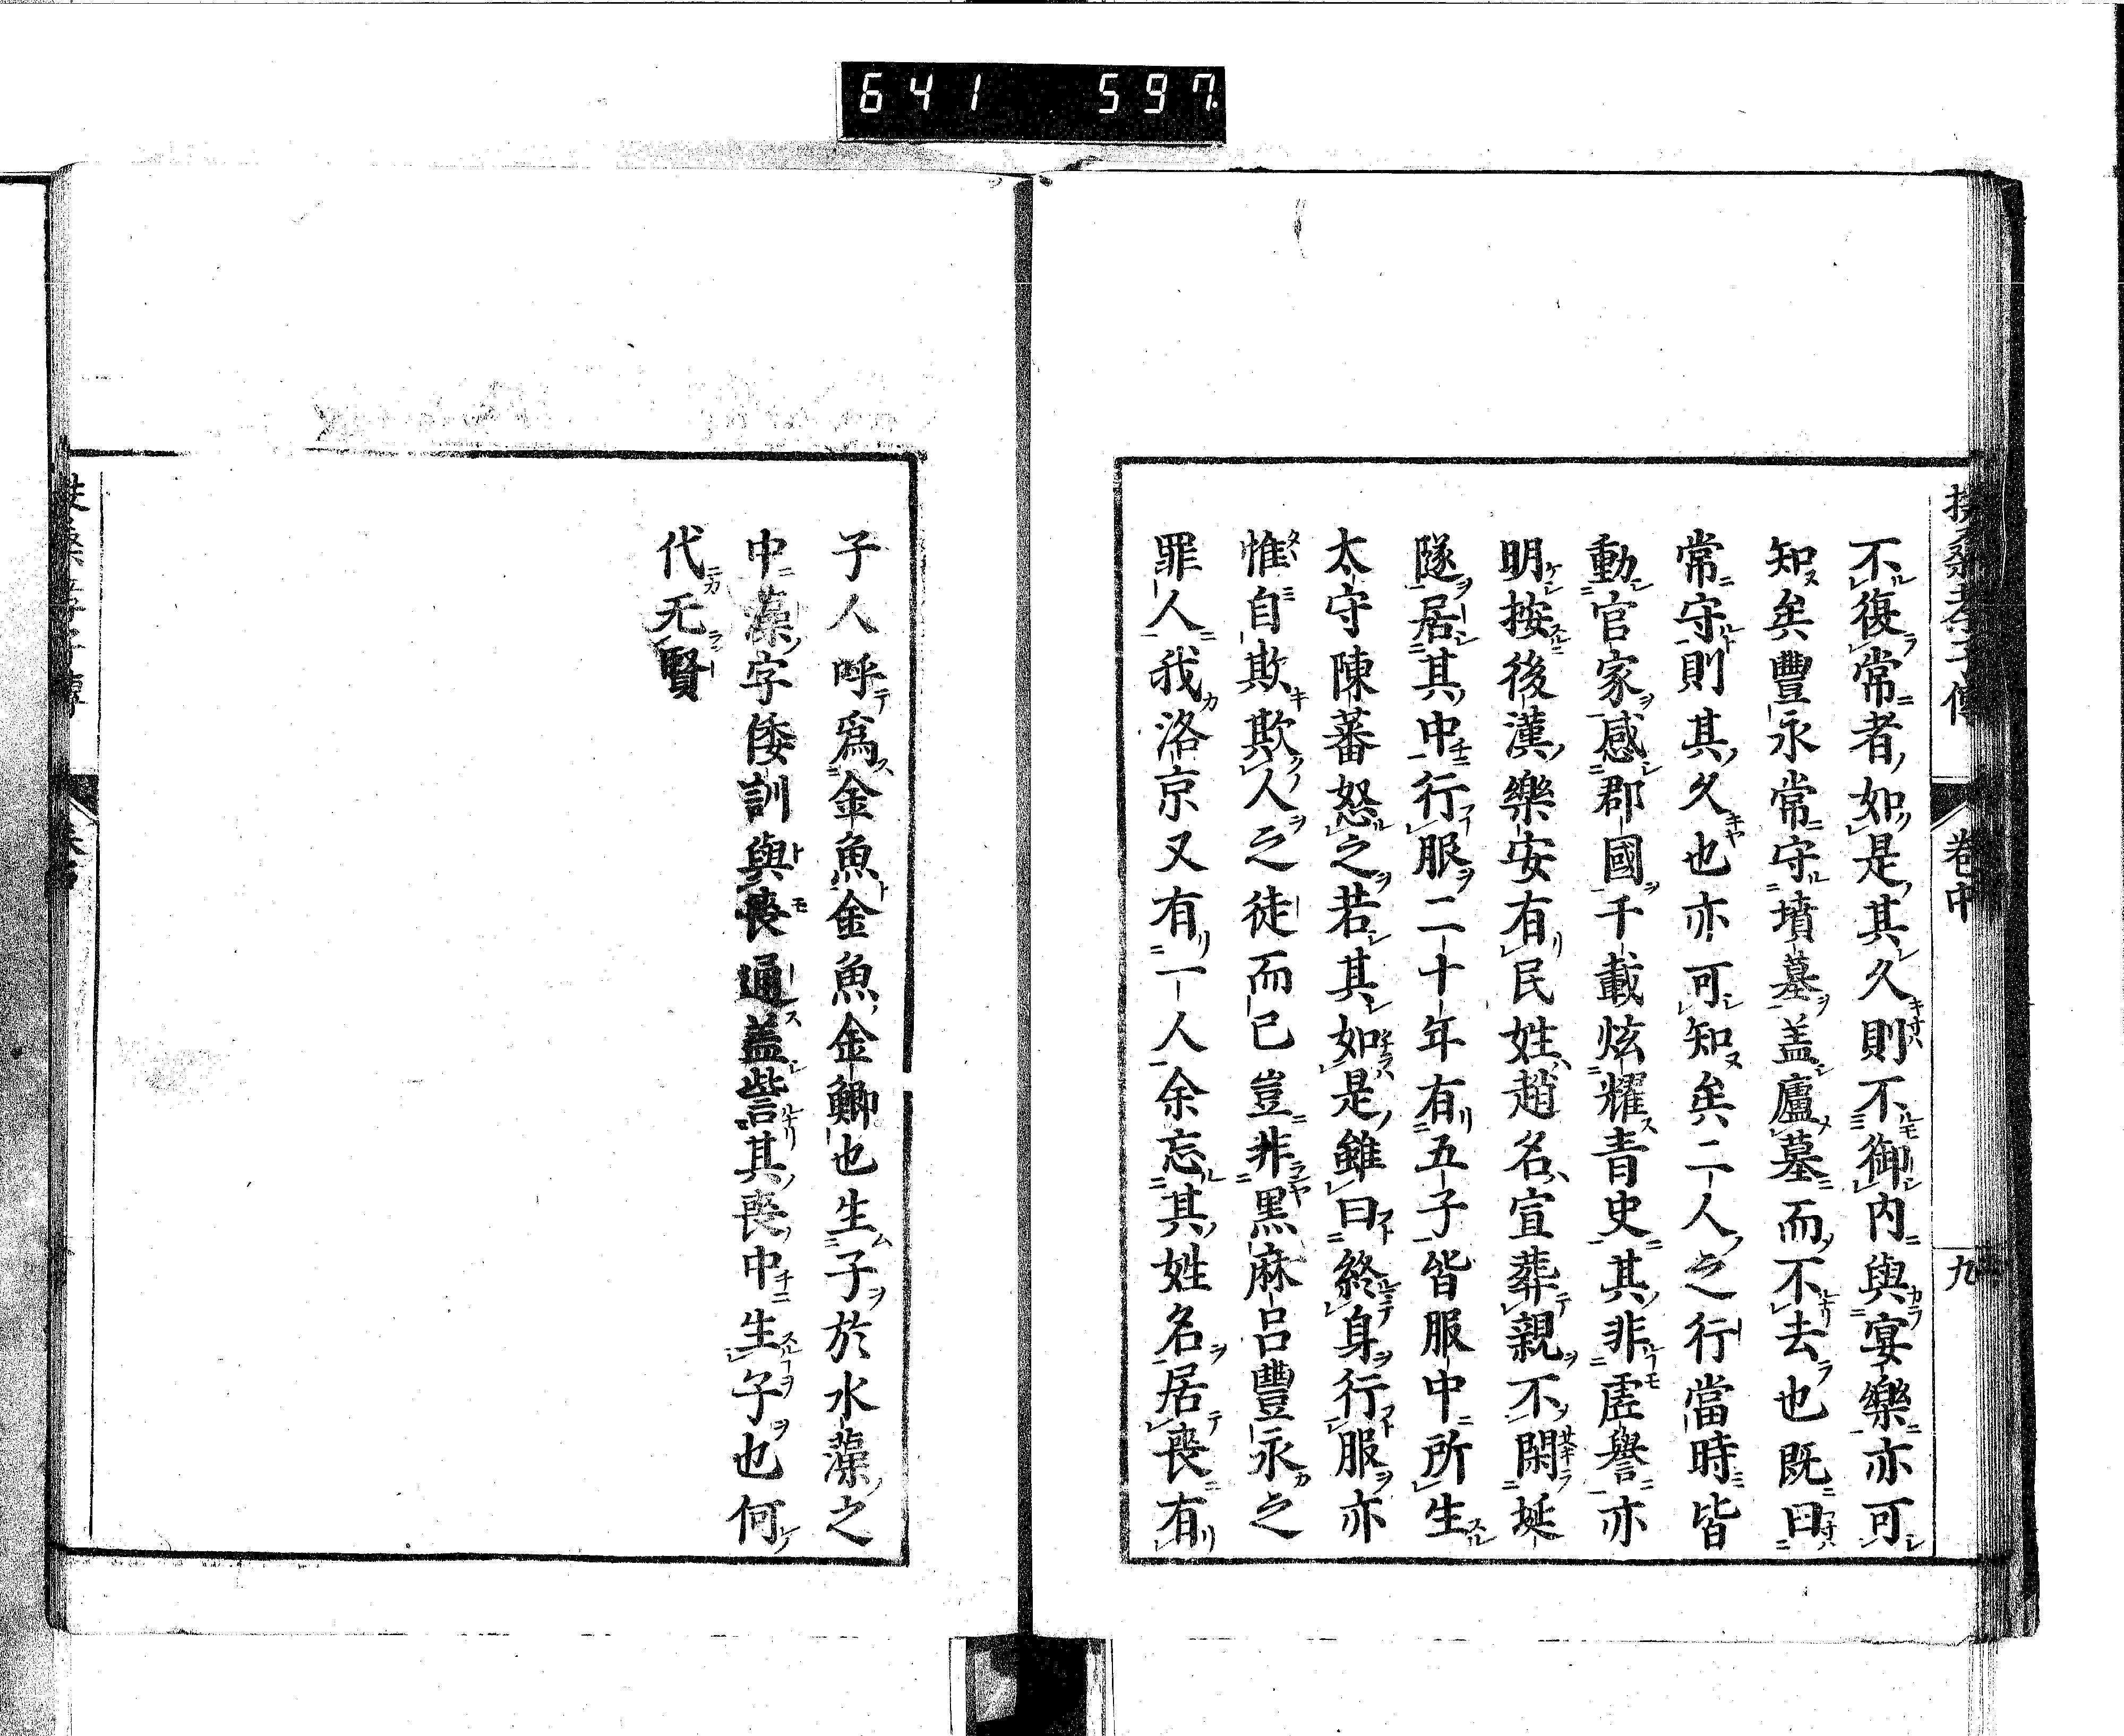 641 597
扶桑孝子傳 卷中 九
不復常者如是其久則不御内與宴樂亦可
知矣豐永常守墳墓盖廬墓而不去也既曰
常守則其久也亦可知矣二人之行當時皆
動官家感郡國千載炫耀青史其非虛譽亦
明按後漢樂安有民姓趙名宣葬親不閑埏
隧居其中行服二十年有五子皆服中所生
太守陳蕃怒之若其如是雖曰終身行服亦
惟自欺欺人之徒而已豈非黑麻呂豐永之
罪人我洛京又有一人余忘其姓名居喪有
子人呼爲金魚金魚金鯽也生子於水藻之
中藻字倭訓與喪通盖訾其喪中生子也何
代无賢